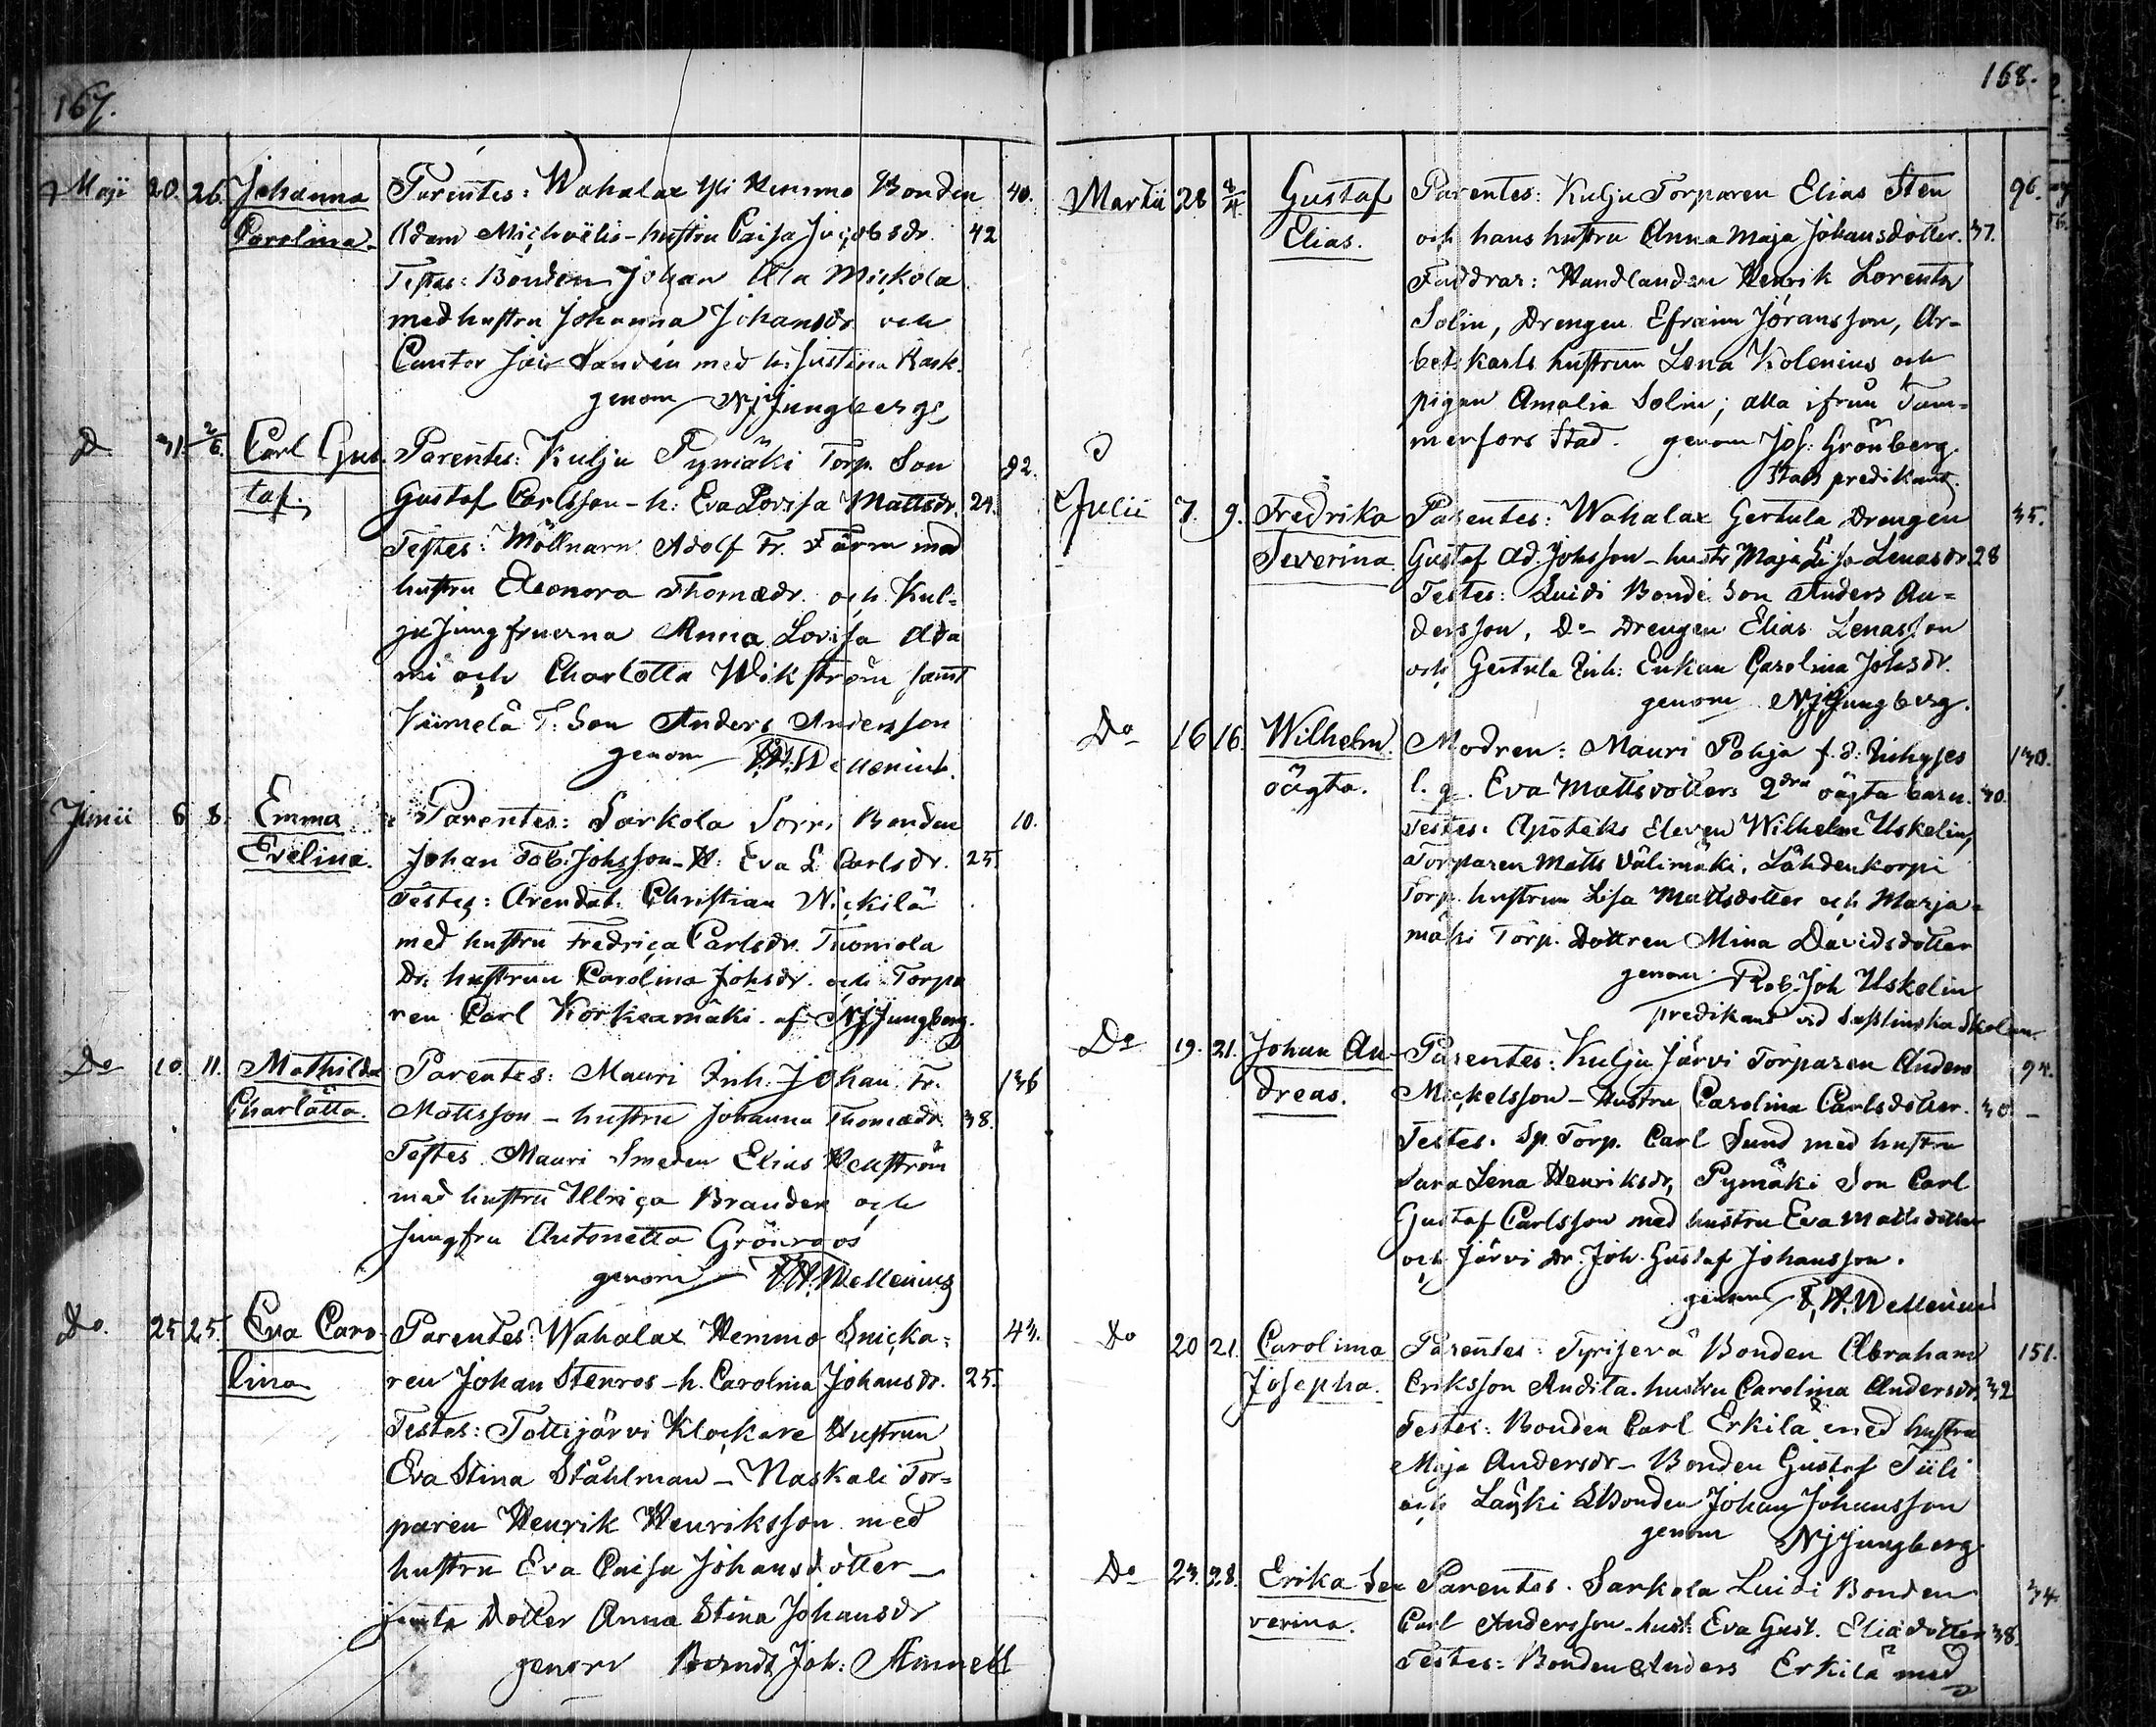 167.
Maji 20. 26. Johanna Parentes: Wahalax Yli Hemmo Bonden 40.
Carolina. Adam Michaëlis - hustru Caisa Jacobsdr. 42
Testes: Bonden Johan Ala Mickola
med hustru Johanna Johansdr och
Cantor Joh Sandén med h. Justina Rask.
genom NJjungberg
D 31. 2/6. Carl Gus Parentes: Kulju Pymäki Torp. Son 92.
taf. Gustaf Carlsson - h: Eva Lovisa Mattsdr. 24.
Testes: Möllnarn Adolf Fr. Färm med
hustru Eleonora Thomædr. och Kul=
ju Jungfruerna Anna Lovisa Ada
mi och Charlotta Wikström samt
Viimelä T: Son Anders Andersson
genom F.H. Mellenius.
Junii 6 8. Emma Parentes: Sarkola Sorri Bonden 10.
Evelina. Johan Tob: Johsson - H: Eva L Carlsdr. 25.
Testes: Arendat. Christian Nickilä
med hustru Fredrica Carlsdr. Tuomola
Dr. hustrun Carolina Johsdr. och Torpa
ren Carl Korkeamäki. af NJjungberg.
Do 10. 11. Mathilda Parentes: Mauri Inh. Johan Fr. 136
Charlotta. Mattsson - hustru Johanna Thomædr. 38.
Testes Mauri Smeden Elias Wenström
med hustru Ullrica Brander och
Jungfru Antonetta Grönroos
genom F.H. Mellenius
Do. 25 25. Eva Caro- Parentes: Wahalax Hemmo Snicka= 43.
lina ren Johan Stenros - h. Carolina Johansdr. 25.
Testes: Tottijärvi Klockare Hustrun
Eva Stina Ståhlman - Naskali Tor=
paren Henrik Henriksson med
hustru Eva Caisa Johansdotter -
jemte Dotter Anna Stina Johansdr
genom Berndt Joh: Mannell
168.
Martii 28 8/4 Gustaf Parentes: Kulju Torparen Elias Sten 96.
Elias. och hans hustru Anna Maja Johansdotter. 37.
Faddrar: Handlanden Henrik Lorentz
Solin, Drengen Efraim Jöransson, Ar-
betskarls hustrun Lena Kolenius och
pigan Amalia Solin; alla ifrån Tam-
merfors Stad. genom Jos: Grönberg.
Stads predikant.
Julii 7. 9. Fredrika Parentes: Wahalax Gertula Drengen 35.
Severina. Gustaf Ad. Johsson - hustr Maja Lisa Lenasdr 28
Testes: Luidi Bonde Son Anders An=
dersson, Do Drengen Elias Lenasson
och Gertula Inh: Enkan Carolina Johsdr.
genom NJjungberg.
Do 16 16. Wilhelm. Modren: Mauri Pohja f. d. Inhyses 130.
oägta. l. q. Eva Mattsdotters 2dra oägta barn. 30.
Testes: Apoteks Eleven Wilhelm Uskelin,
Torparen Matts Välimäki. Lähdenkorpi
Torp. hustrun Lisa Mattsdotter och Marja=
mäki Torp. Dottren Mina Davidsdotter
genom Rob. Joh Uskelin
predikant vid Skolan
Do 19. 21. Johan An- Parentes: Kulju Järvi Torparen Anders 94.
dreas. Mickelsson - Hustru Carolina Carlsdotter. 30 -
Testes. Sp. Torp. Carl Sund med hustru
Sara Lena Henriksdr, Pymäki Son Carl
Gustaf Carlsson med hustru Eva Mattsdotter
och Järvi Dr. Joh. Gustaf Johansson.
genom F.H. Mellenius
Do 20 21. Carolina Parentes: Tyrijevä Bonden Abraham 151.
Josepha. Eriksson Andita. hustru Carolina Andersdr, 32
Testes: Bonden Carl Erkilä med hustru
Maja Andersdr - Bonden Gustaf Tiili
och Bonden Johan Johansson
genom NJjungberg
Do 23. 28. Erika Se Parentes. Sarkola Luidi Bonden 34.
verina. Carl Andersson - hust: Eva Gust. Eliædotter 38.
Testes: Bonden Anders Erkilä med